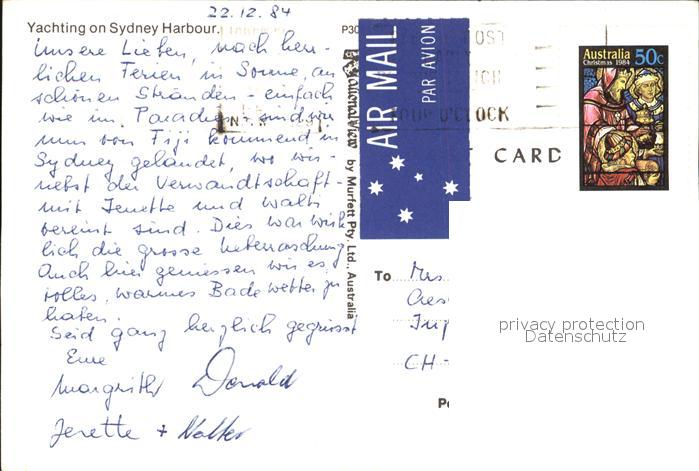 22.12.84
Yachting on Sydney Harbour.
Unsere Lieben, nach herr-
lichen Ferien in Sonne, an
schönen Stränden - einfach
wie im Paradies sind wir
nun von Fiji kommend in
Sydney gelandet, wo wir -
nebst der Verwandtschaft -
mit Jenette und Walti
vereint sind. Dies war wirk
lich die grosse Ueberraschung
Auch hier geniessen wir es,
tolles, warmes Badewetter zu
haben.
Seid ganz herzlich gegrüsst
Eure
Margrith Donald
Jenette + Walter
P30
National View by Murfett Pty. Ltd., Australia
AIR MAIL
PAR AVION
POST
O'CLOCK
CARD
Australia 50c
Christmas 1984
To Mrs
CH-
privacy protection
Datenschutz